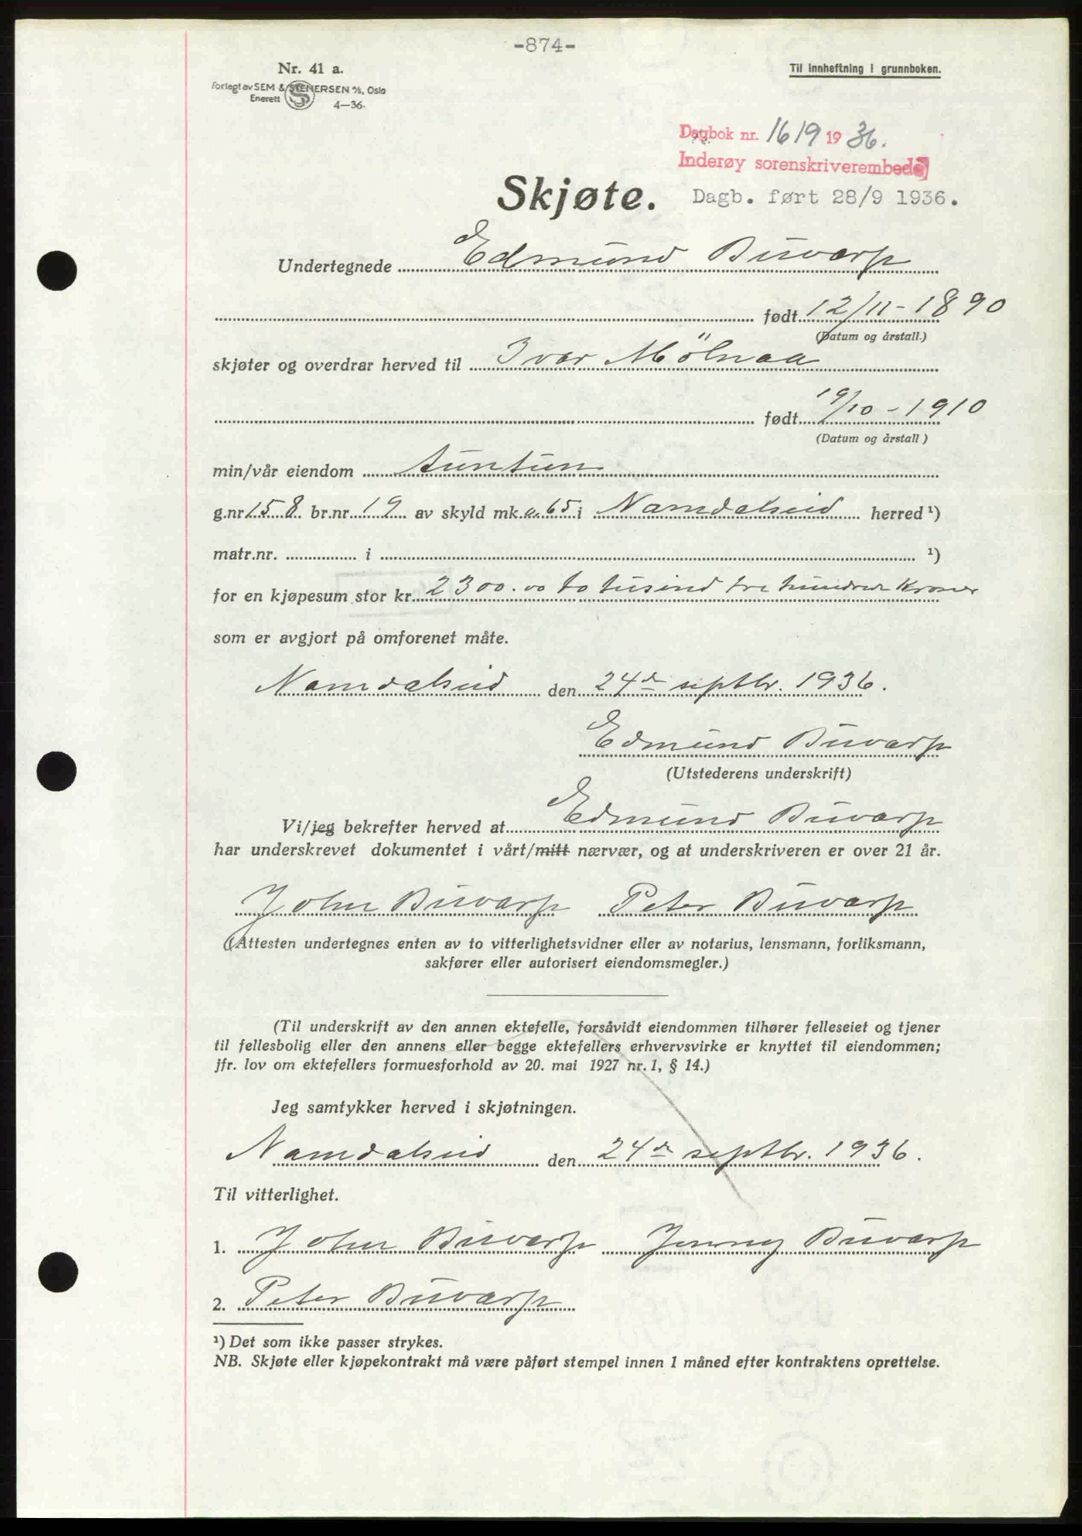 -874-
Nr. 41 a.
Forlagt av SEM & STENERSEN A/S, Oslo
Enerett 4-36.
Til innheftning i grunnboken.
Dagbok nr. 1619 1936.
Inderøy sorenskriverembede
Skjøte.
Dagb. ført 28/9 1936.
Undertegnede Edmund Buvarp
født 12/11-1890
(Datum og årstall.)
skjøter og overdrar herved til Ivar Mölnaa
født 19/10-1910
(Datum og årstall)
min/vår eiendom Auntun
g.nr. 158 br.nr. 19 av skyld mk. 0.65 i Namdalseid herred ¹)
matr.nr. i ¹)
for en kjøpesum stor kr. 2300.00 to tusind tre hundrede kroner
som er avgjort på omforenet måte.
Namdalseid den 24de septbr. 1936.
Edmund Buvarp
(Utstederens underskrift)
Vi/jeg bekrefter herved at Edmund Buvarp
har underskrevet dokumentet i vårt/mitt nærvær, og at underskriveren er over 21 år.
John Buvarp Peter Buvarp
(Attesten undertegnes enten av to vitterlighetsvidner eller av notarius, lensmann, forliksmann,
sakfører eller autorisert eiendomsmegler.)
(Til underskrift av den annen ektefelle, forsåvidt eiendommen tilhører felleseiet og tjener
til fellesbolig eller den annens eller begge ektefellers erhvervsvirke er knyttet til eiendommen;
jfr. lov om ektefellers formuesforhold av 20. mai 1927 nr. 1, § 14.)
Jeg samtykker herved i skjøtningen.
Namdalseid den 24de septbr. 1936.
Til vitterlighet.
1. John Buvarp Jenny Buvarp
2. Peter Buvarp
¹) Det som ikke passer strykes.
NB. Skjøte eller kjøpekontrakt må være påført stempel innen 1 måned efter kontraktens oprettelse.